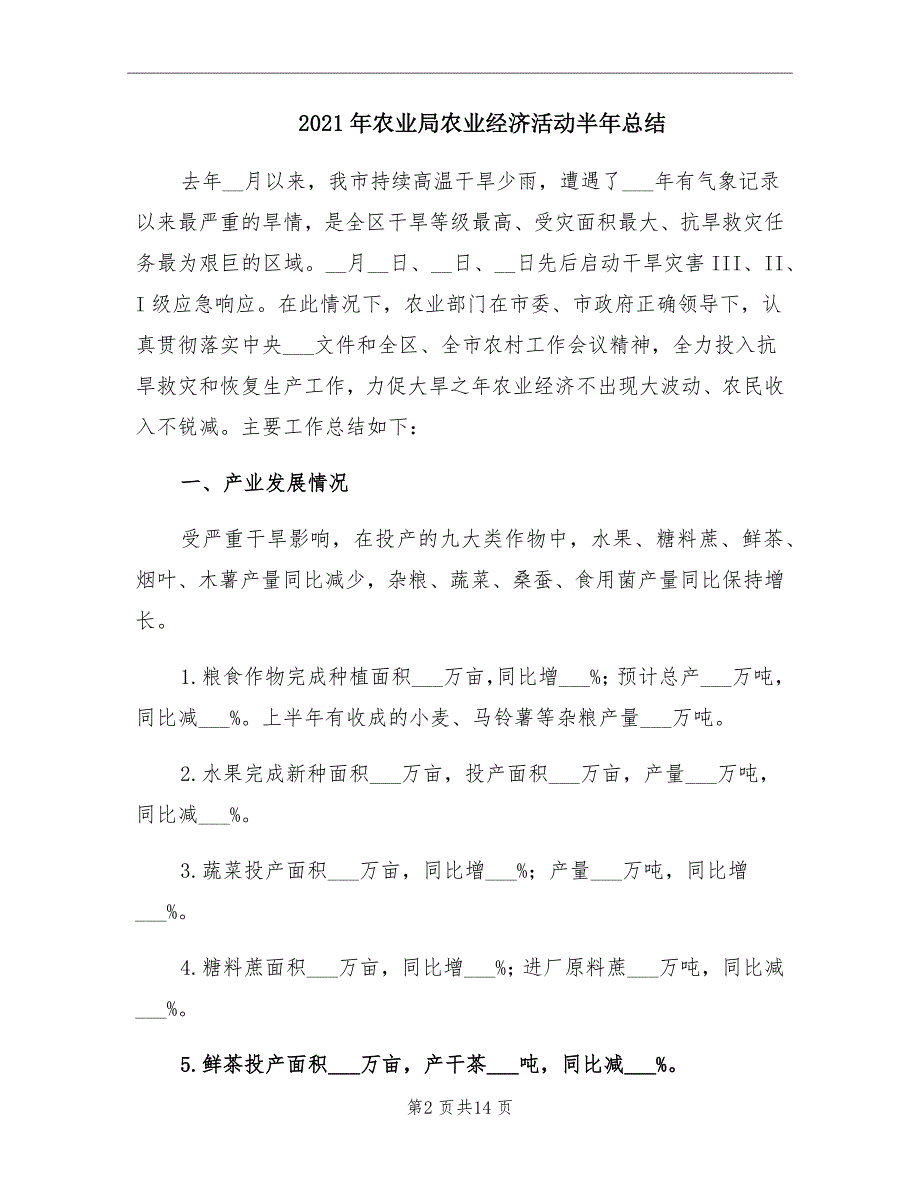 2021年农业局农业经济活动半年总结
去年__月以来，我市持续高温干旱少雨，遭遇了___年有气象记录
以来最严重的旱情，是全区干旱等级最高、受灾面积最大、抗旱救灾任
务最为艰巨的区域。__月__日、__日、__日先后启动干旱灾害III、II、
I级应急响应。在此情况下，农业部门在市委、市政府正确领导下，认
真贯彻落实中央___文件和全区、全市农村工作会议精神，全力投入抗
旱救灾和恢复生产工作，力促大旱之年农业经济不出现大波动、农民收
入不锐减。主要工作总结如下：
一、产业发展情况
受严重干旱影响，在投产的九大类作物中，水果、糖料蔗、鲜茶、
烟叶、木薯产量同比减少，杂粮、蔬菜、桑蚕、食用菌产量同比保持增
长。
1.粮食作物完成种植面积___万亩，同比增___%；预计总产___万吨，
同比减___%。上半年有收成的小麦、马铃薯等杂粮产量___万吨。
2.水果完成新种面积___万亩，投产面积___万亩，产量___万吨，
同比减___%。
3.蔬菜投产面积___万亩，同比增___%；产量___万吨，同比增
___%。
4.糖料蔗面积___万亩，同比增___%；进厂原料蔗___万吨，同比减
___%。
5.鲜茶投产面积___万亩，产干茶___吨，同比减___%。
第2 页共14 页